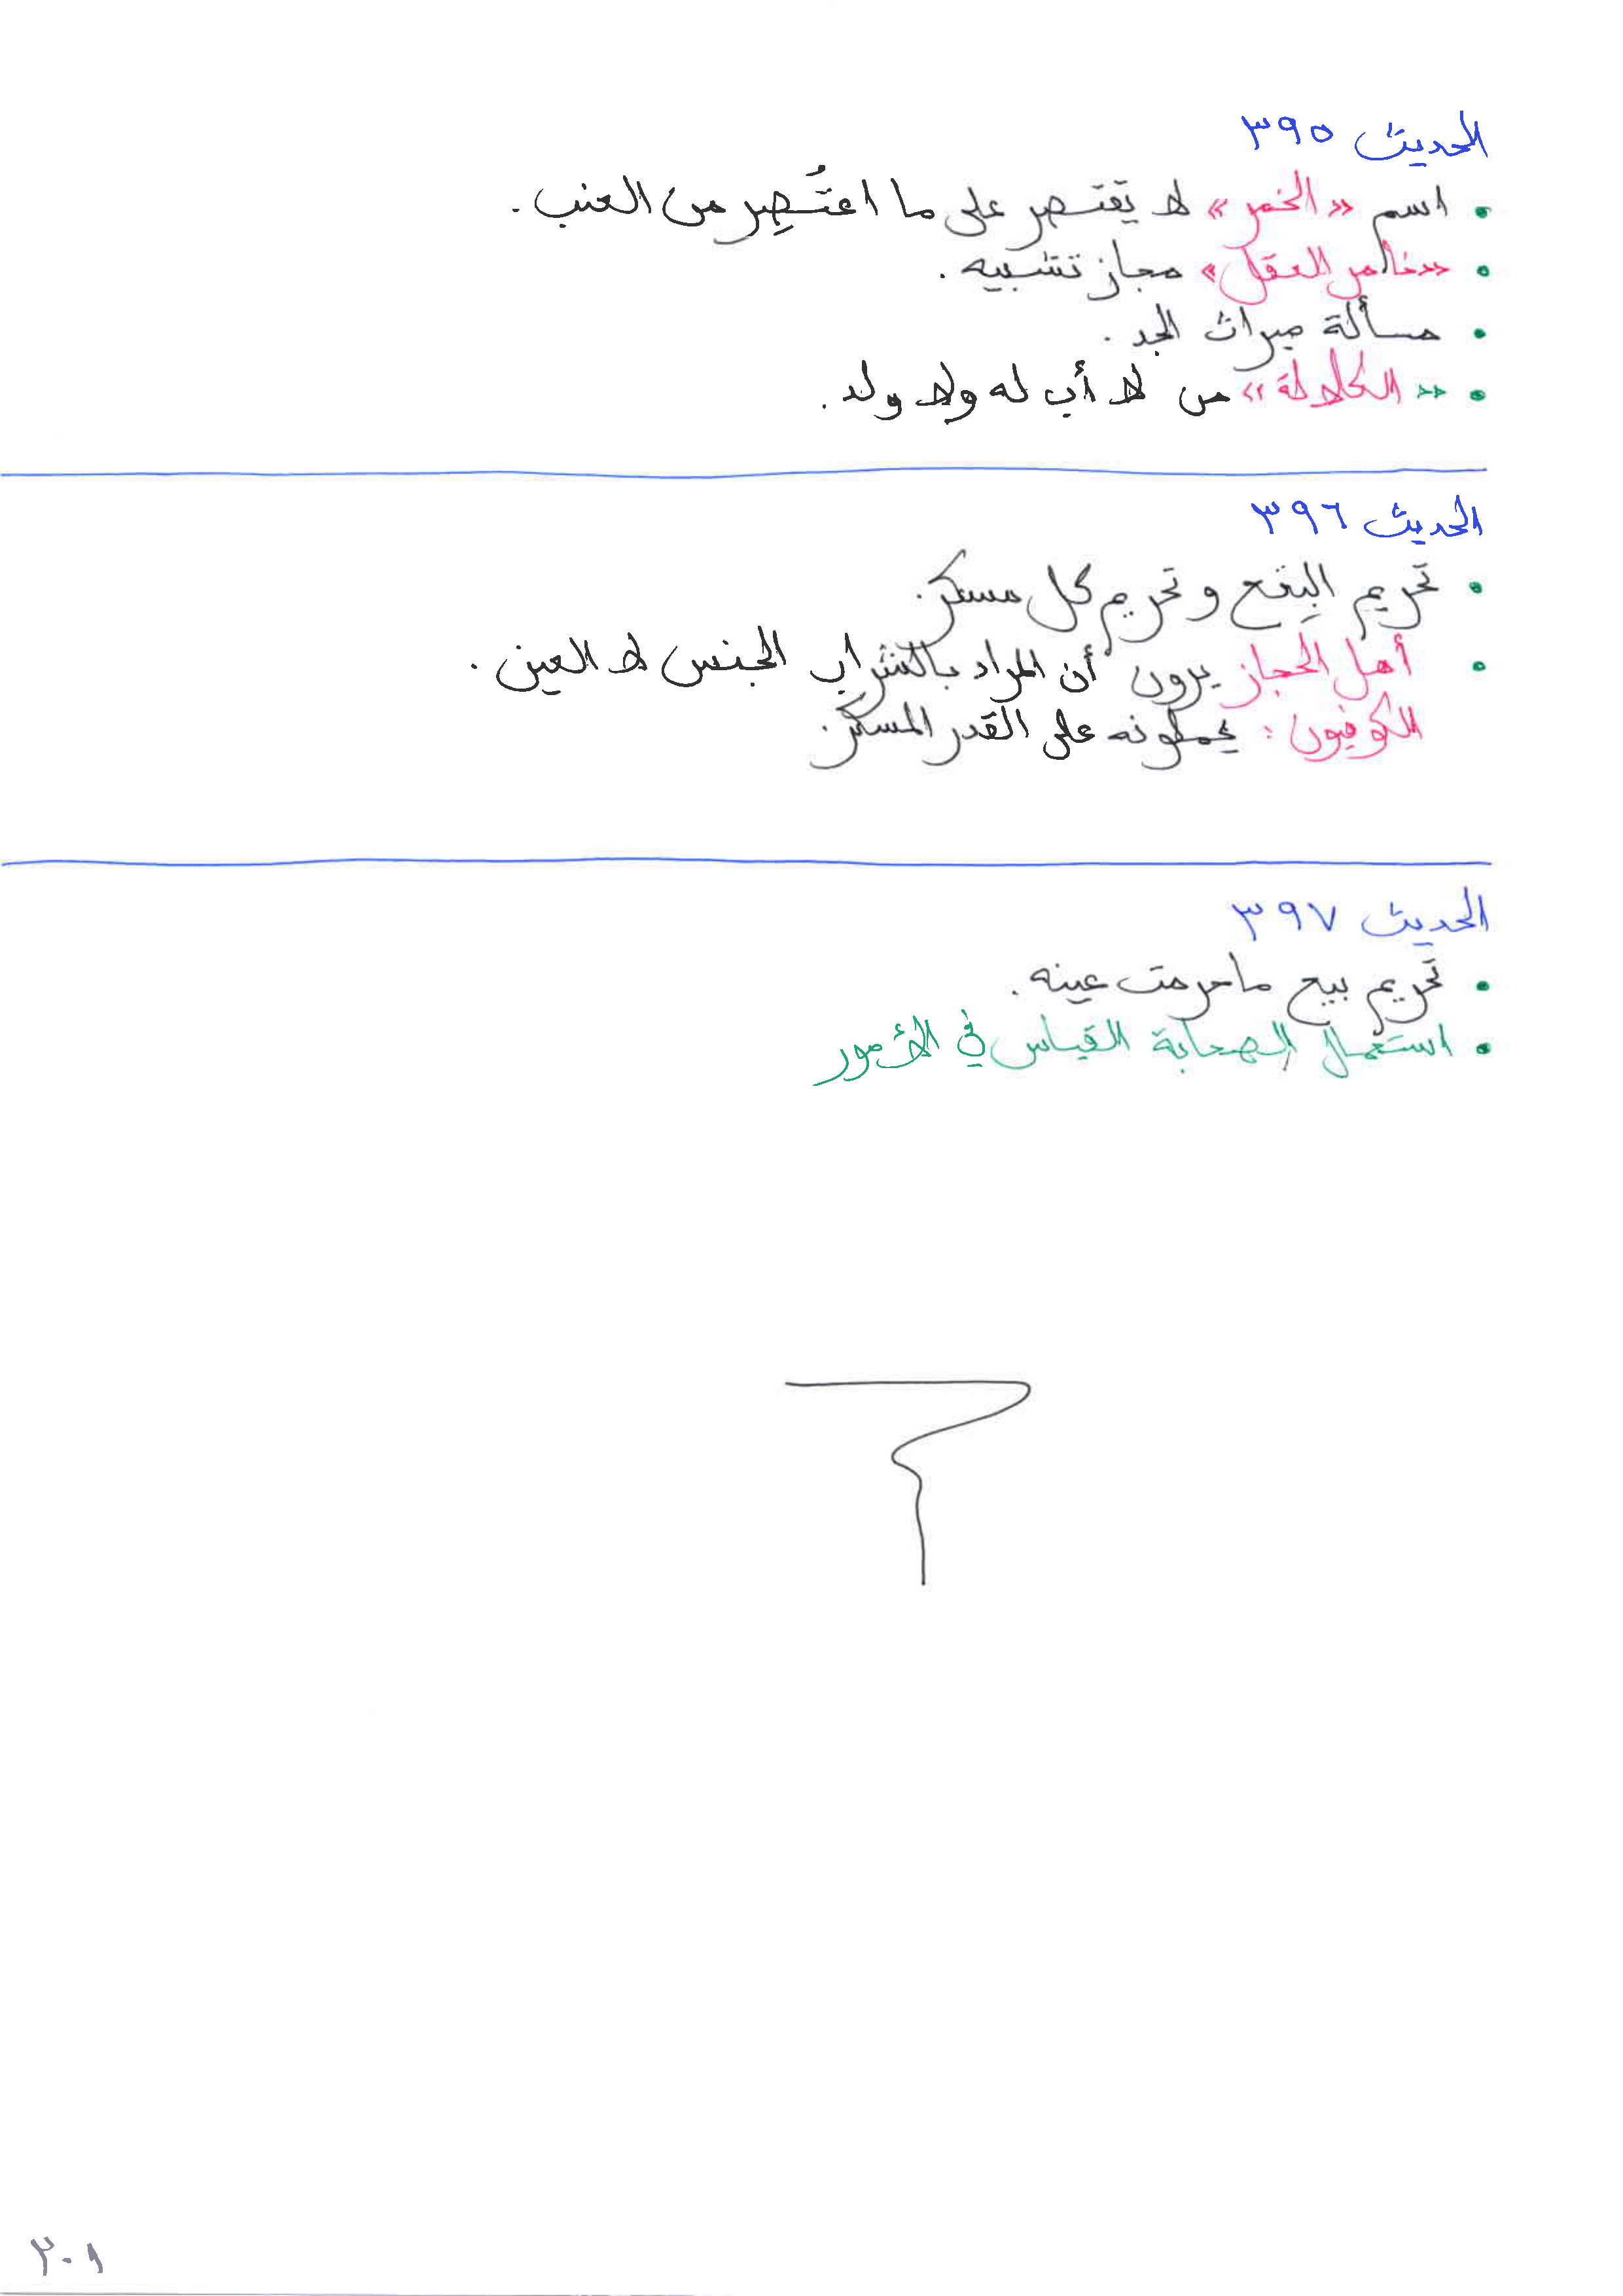 الحديث ٣٩٥
• اسم «الخمر» لا يقتصر على ما اعتُصِر من العنب.
• «خامر العقل» مجاز تشبيه.
• مسألة ميراث الجد.
• «الكلالة» من لا أب له ولا ولد.
الحديث ٣٩٦
• تحريم البِتع وتحريم كل مسكر.
• أهل الحجاز يرون أن المراد بالشراب الجنس لا العين.
الكوفيون: يحملونه على القدر المسكر.
الحديث ٣٩٧
• تحريم بيع ما حرمت عينه.
• استعمال الصحابة القياس في الأمور
٢٠١